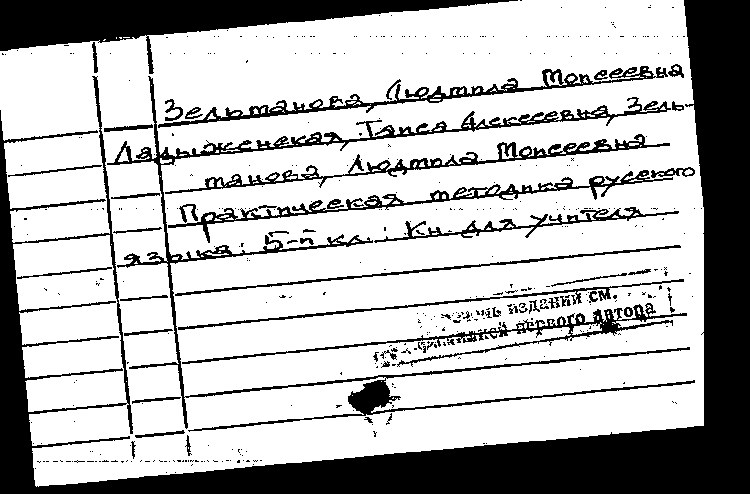 Зельманова, Людмила Моисеевна
Ладыженская, Таиса Алексеевна, Зель-
манова, Людмила Моисеевна
Практическая методика русского
языка: 5-й кл.: Кн. для учителя
изданий см.
первого автора